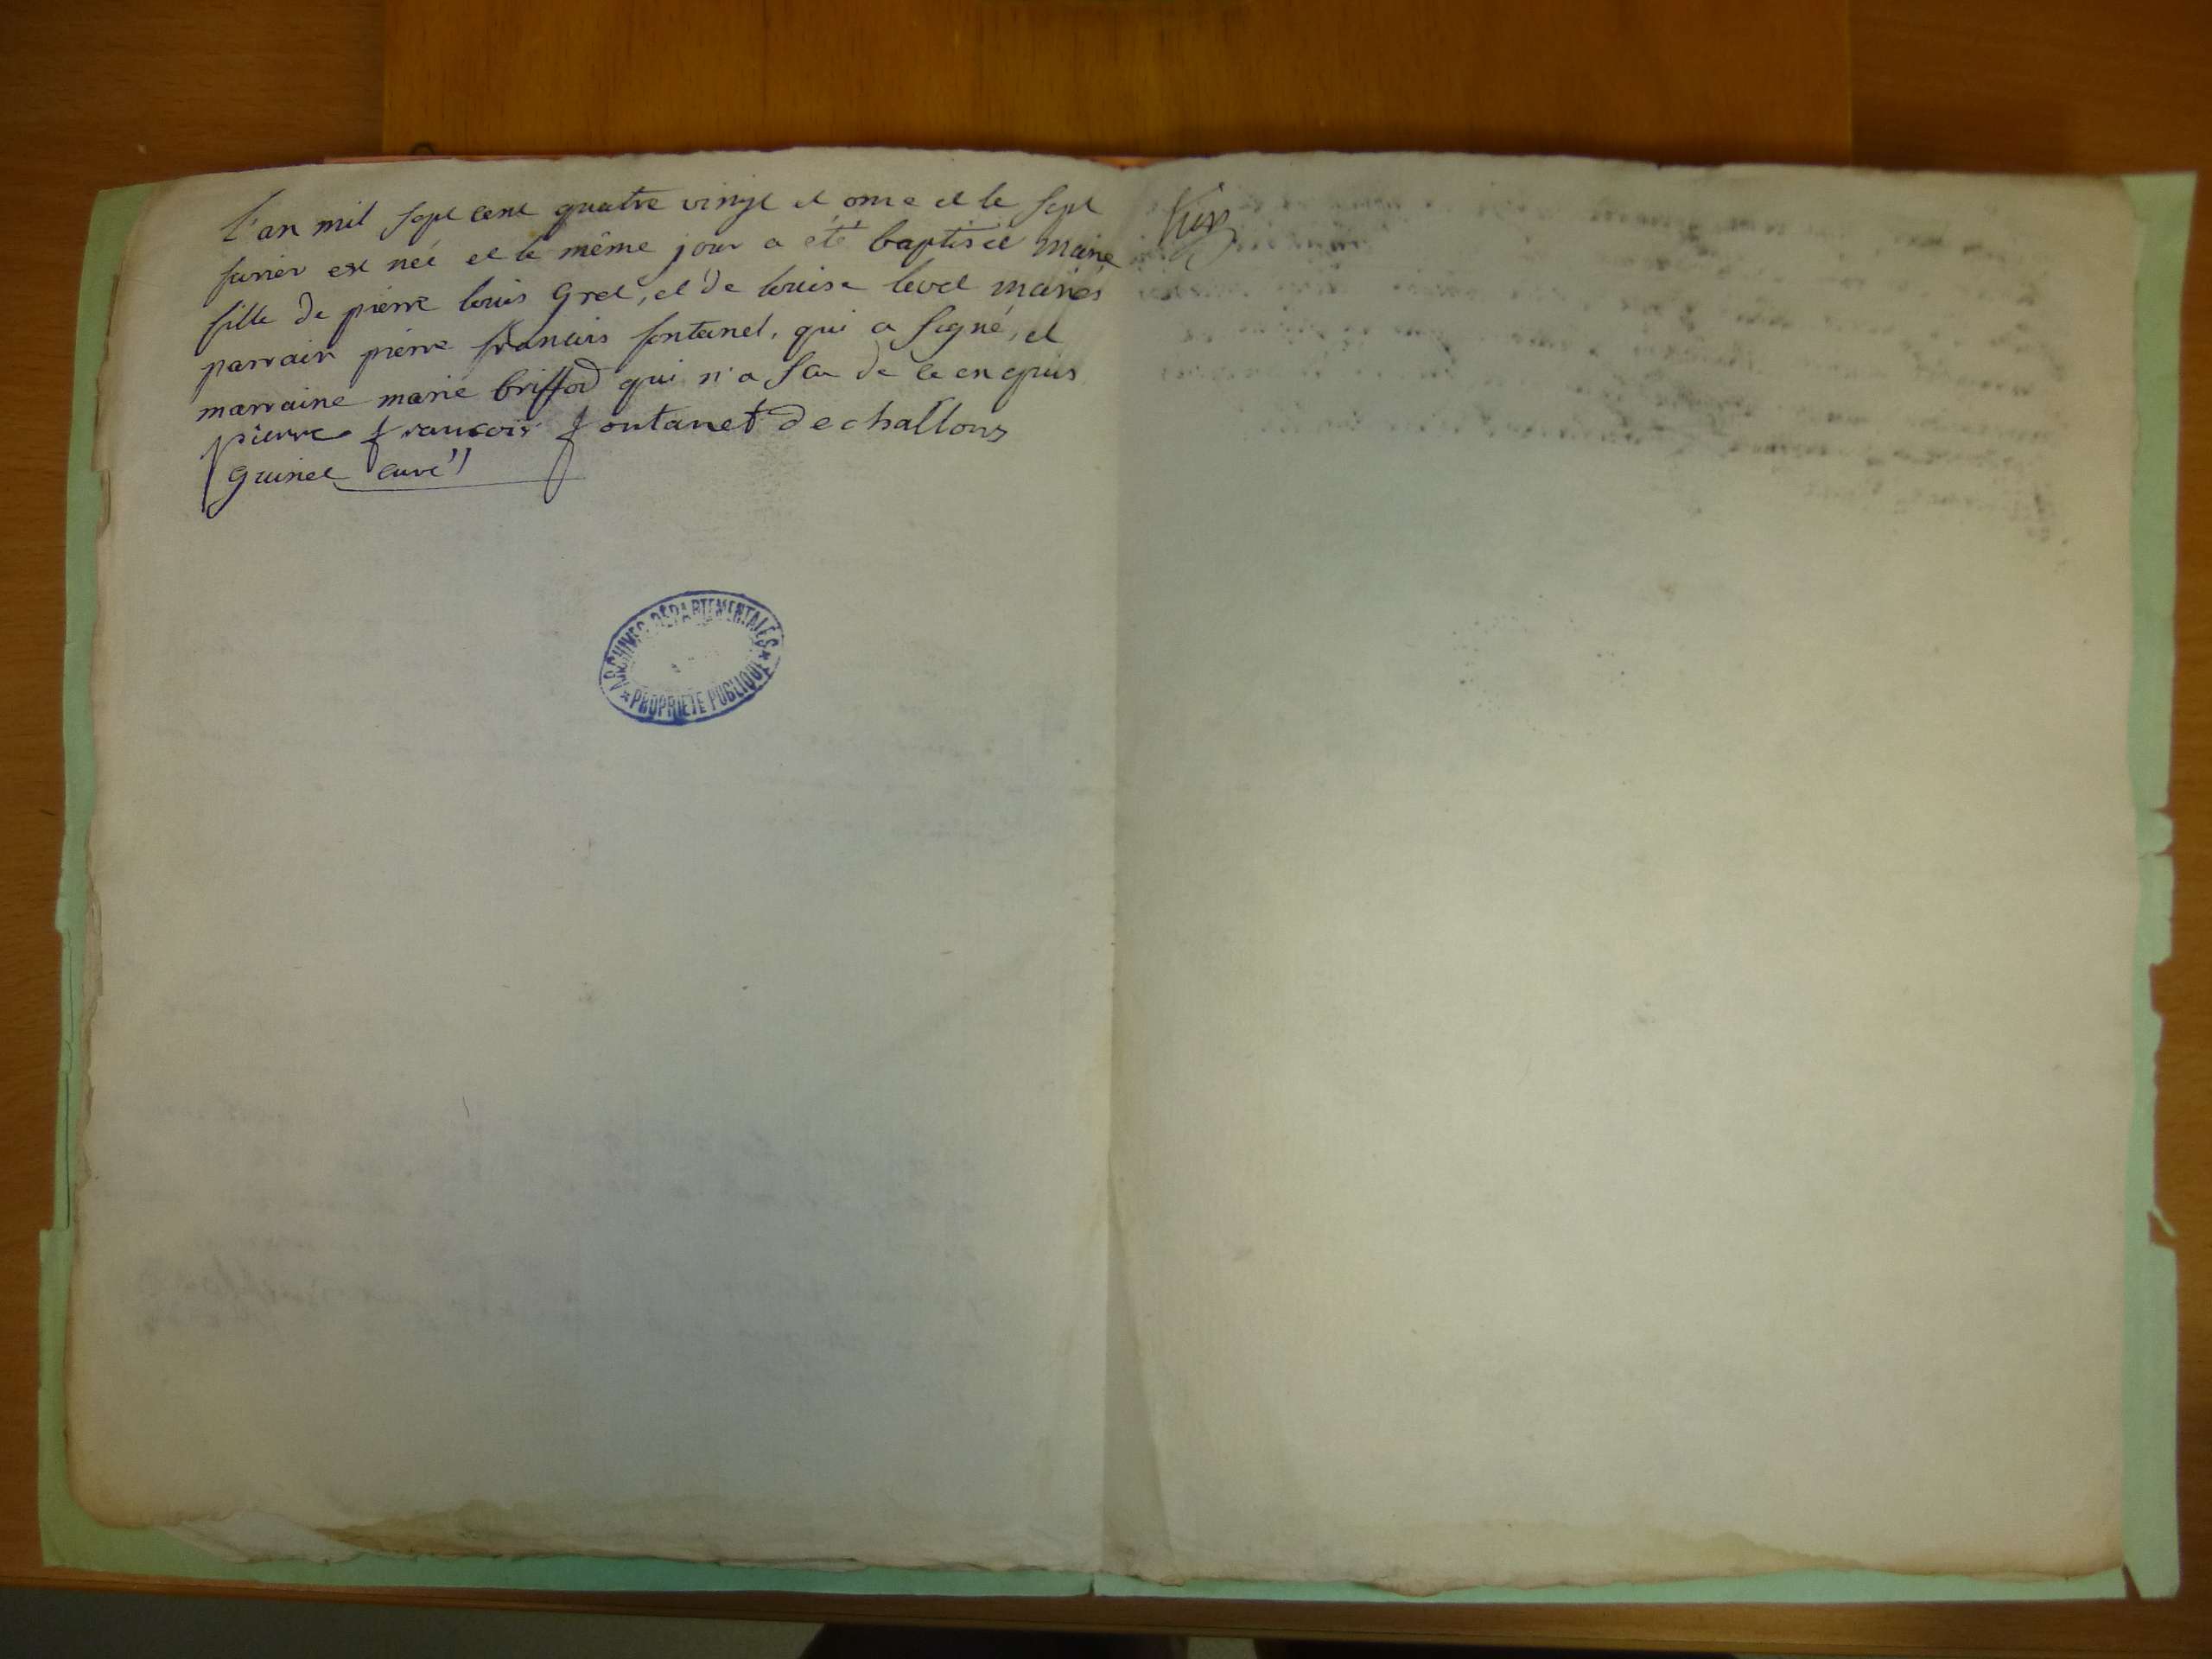 L'an mil sept cent quatre vingt et onze et le sept
janvier est née et le même jour a été baptisée marie
fille de pierre louis Gret, et de louise levet mariés
parrain pierre francois fontanet, qui a signé, et
marraine marie briffod qui n'a sçu de ce enquis
pierre francois fontanet dechallons
Guinet curé
ARCHIVES DÉPARTEMENTALES
* PROPRIÉTÉ PUBLIQUE *